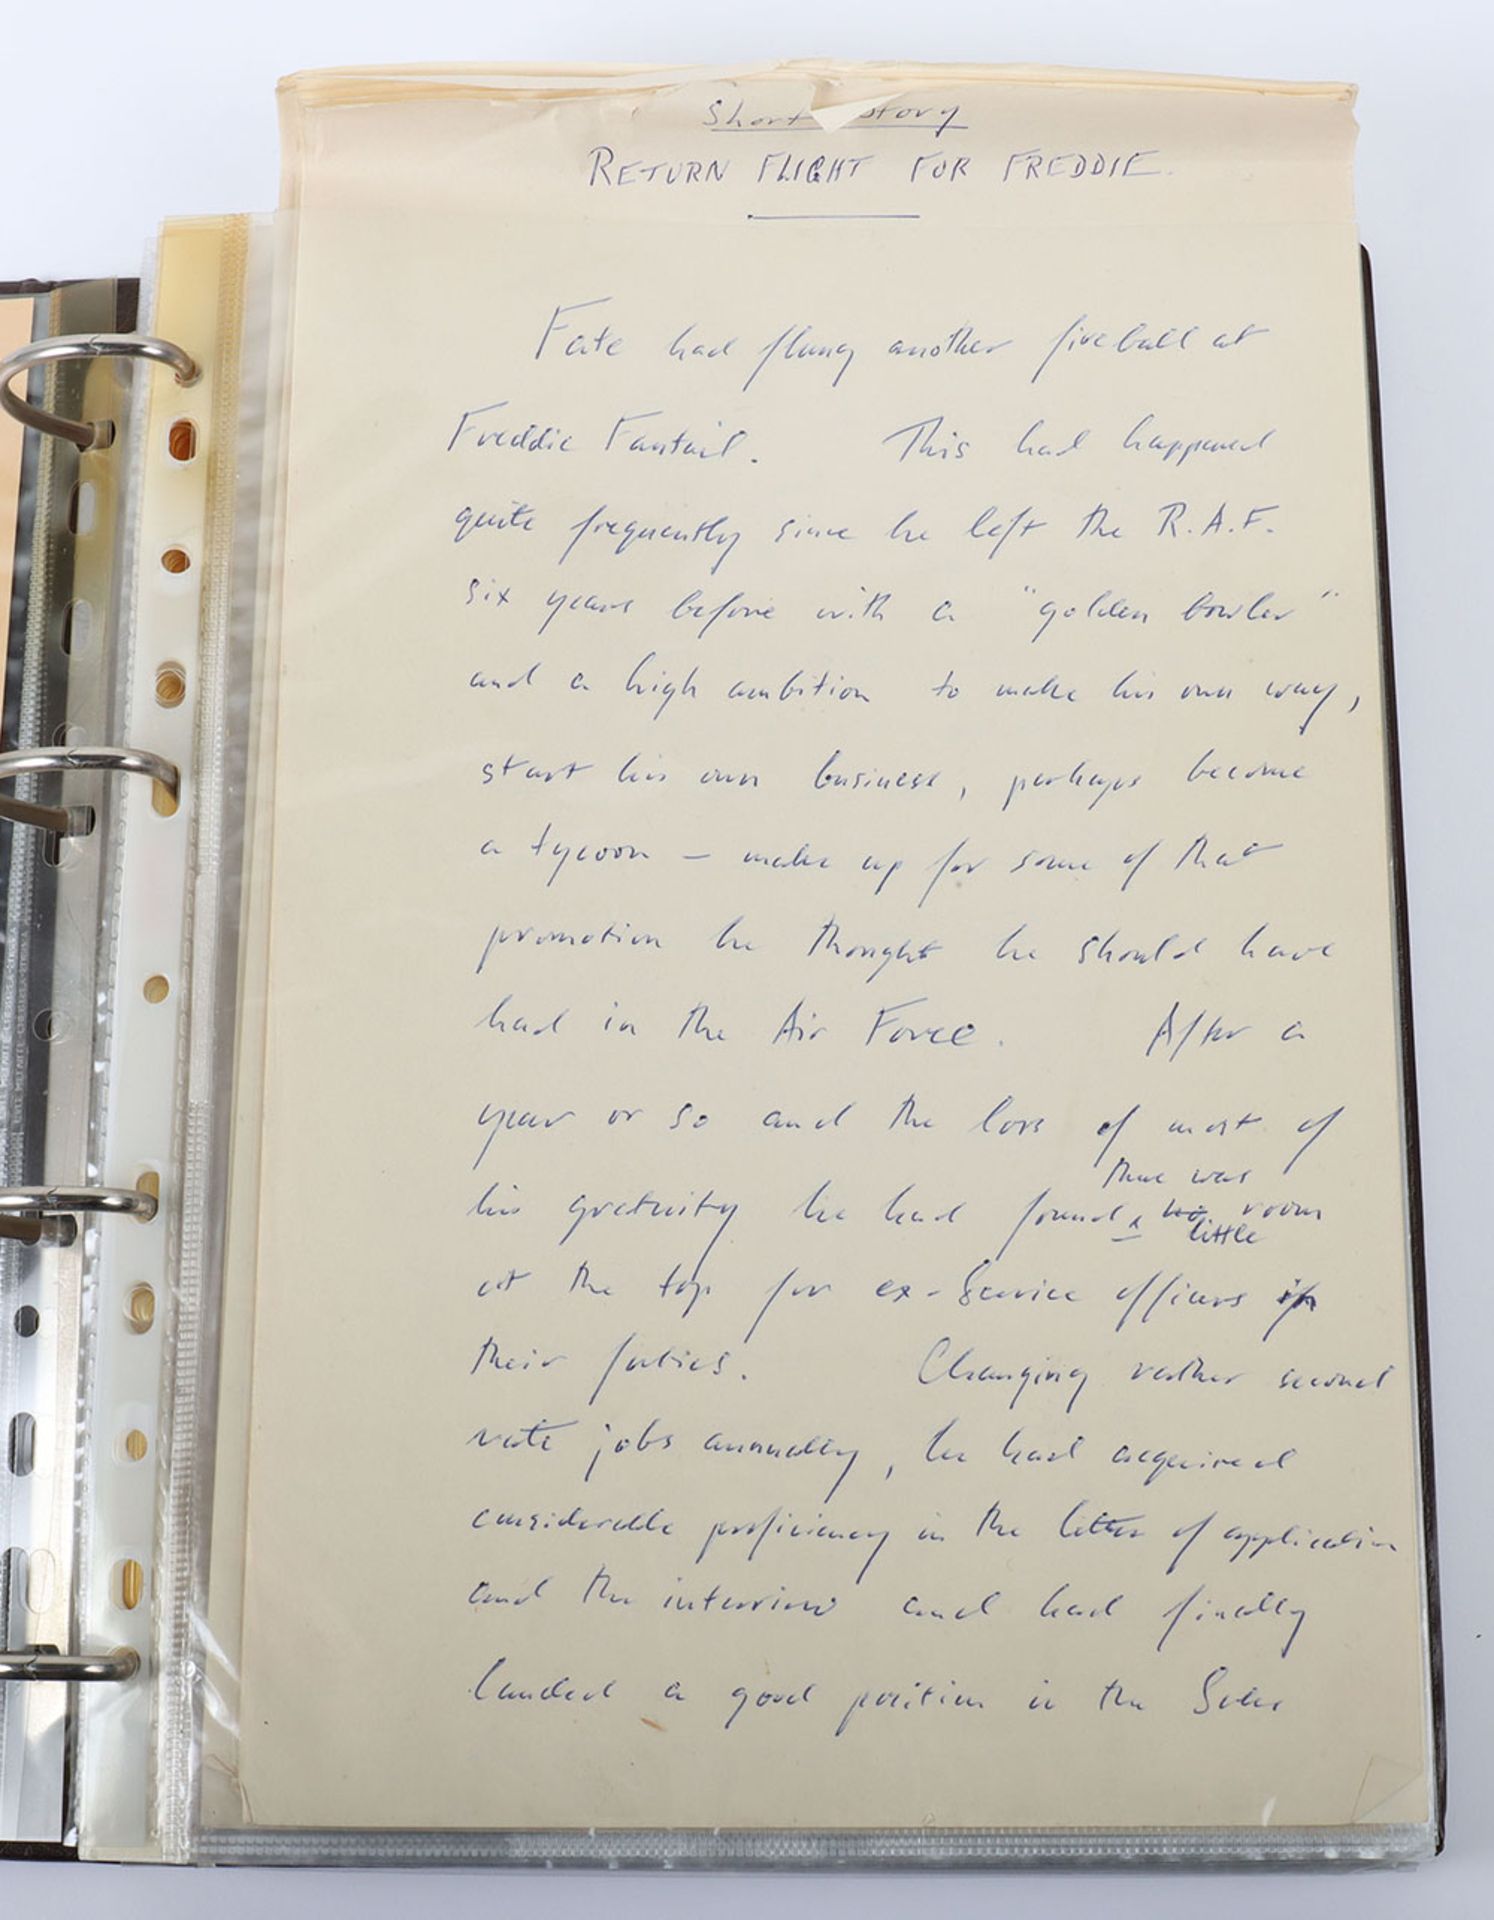 Short Story
RETURN FLIGHT FOR FREDDIE.
Fate had flung another fireball at
Freddie Fantail. This had happened
quite frequently since he left the R.A.F.
six years before with a "golden bowler"
and a high ambition to make his own way,
start his own business, perhaps become
a tycoon – make up for some of that
promotion he thought he should have
had in the Air Force. After a
year or so and the loss of most of
there was
his gratuity he had found no room
little
at the top for ex-Service officers in
their forties. Changing rather second
rate jobs annually, he had acquired
considerable proficiency in the letter of application
and the interview and had finally
landed a good position in the Sales